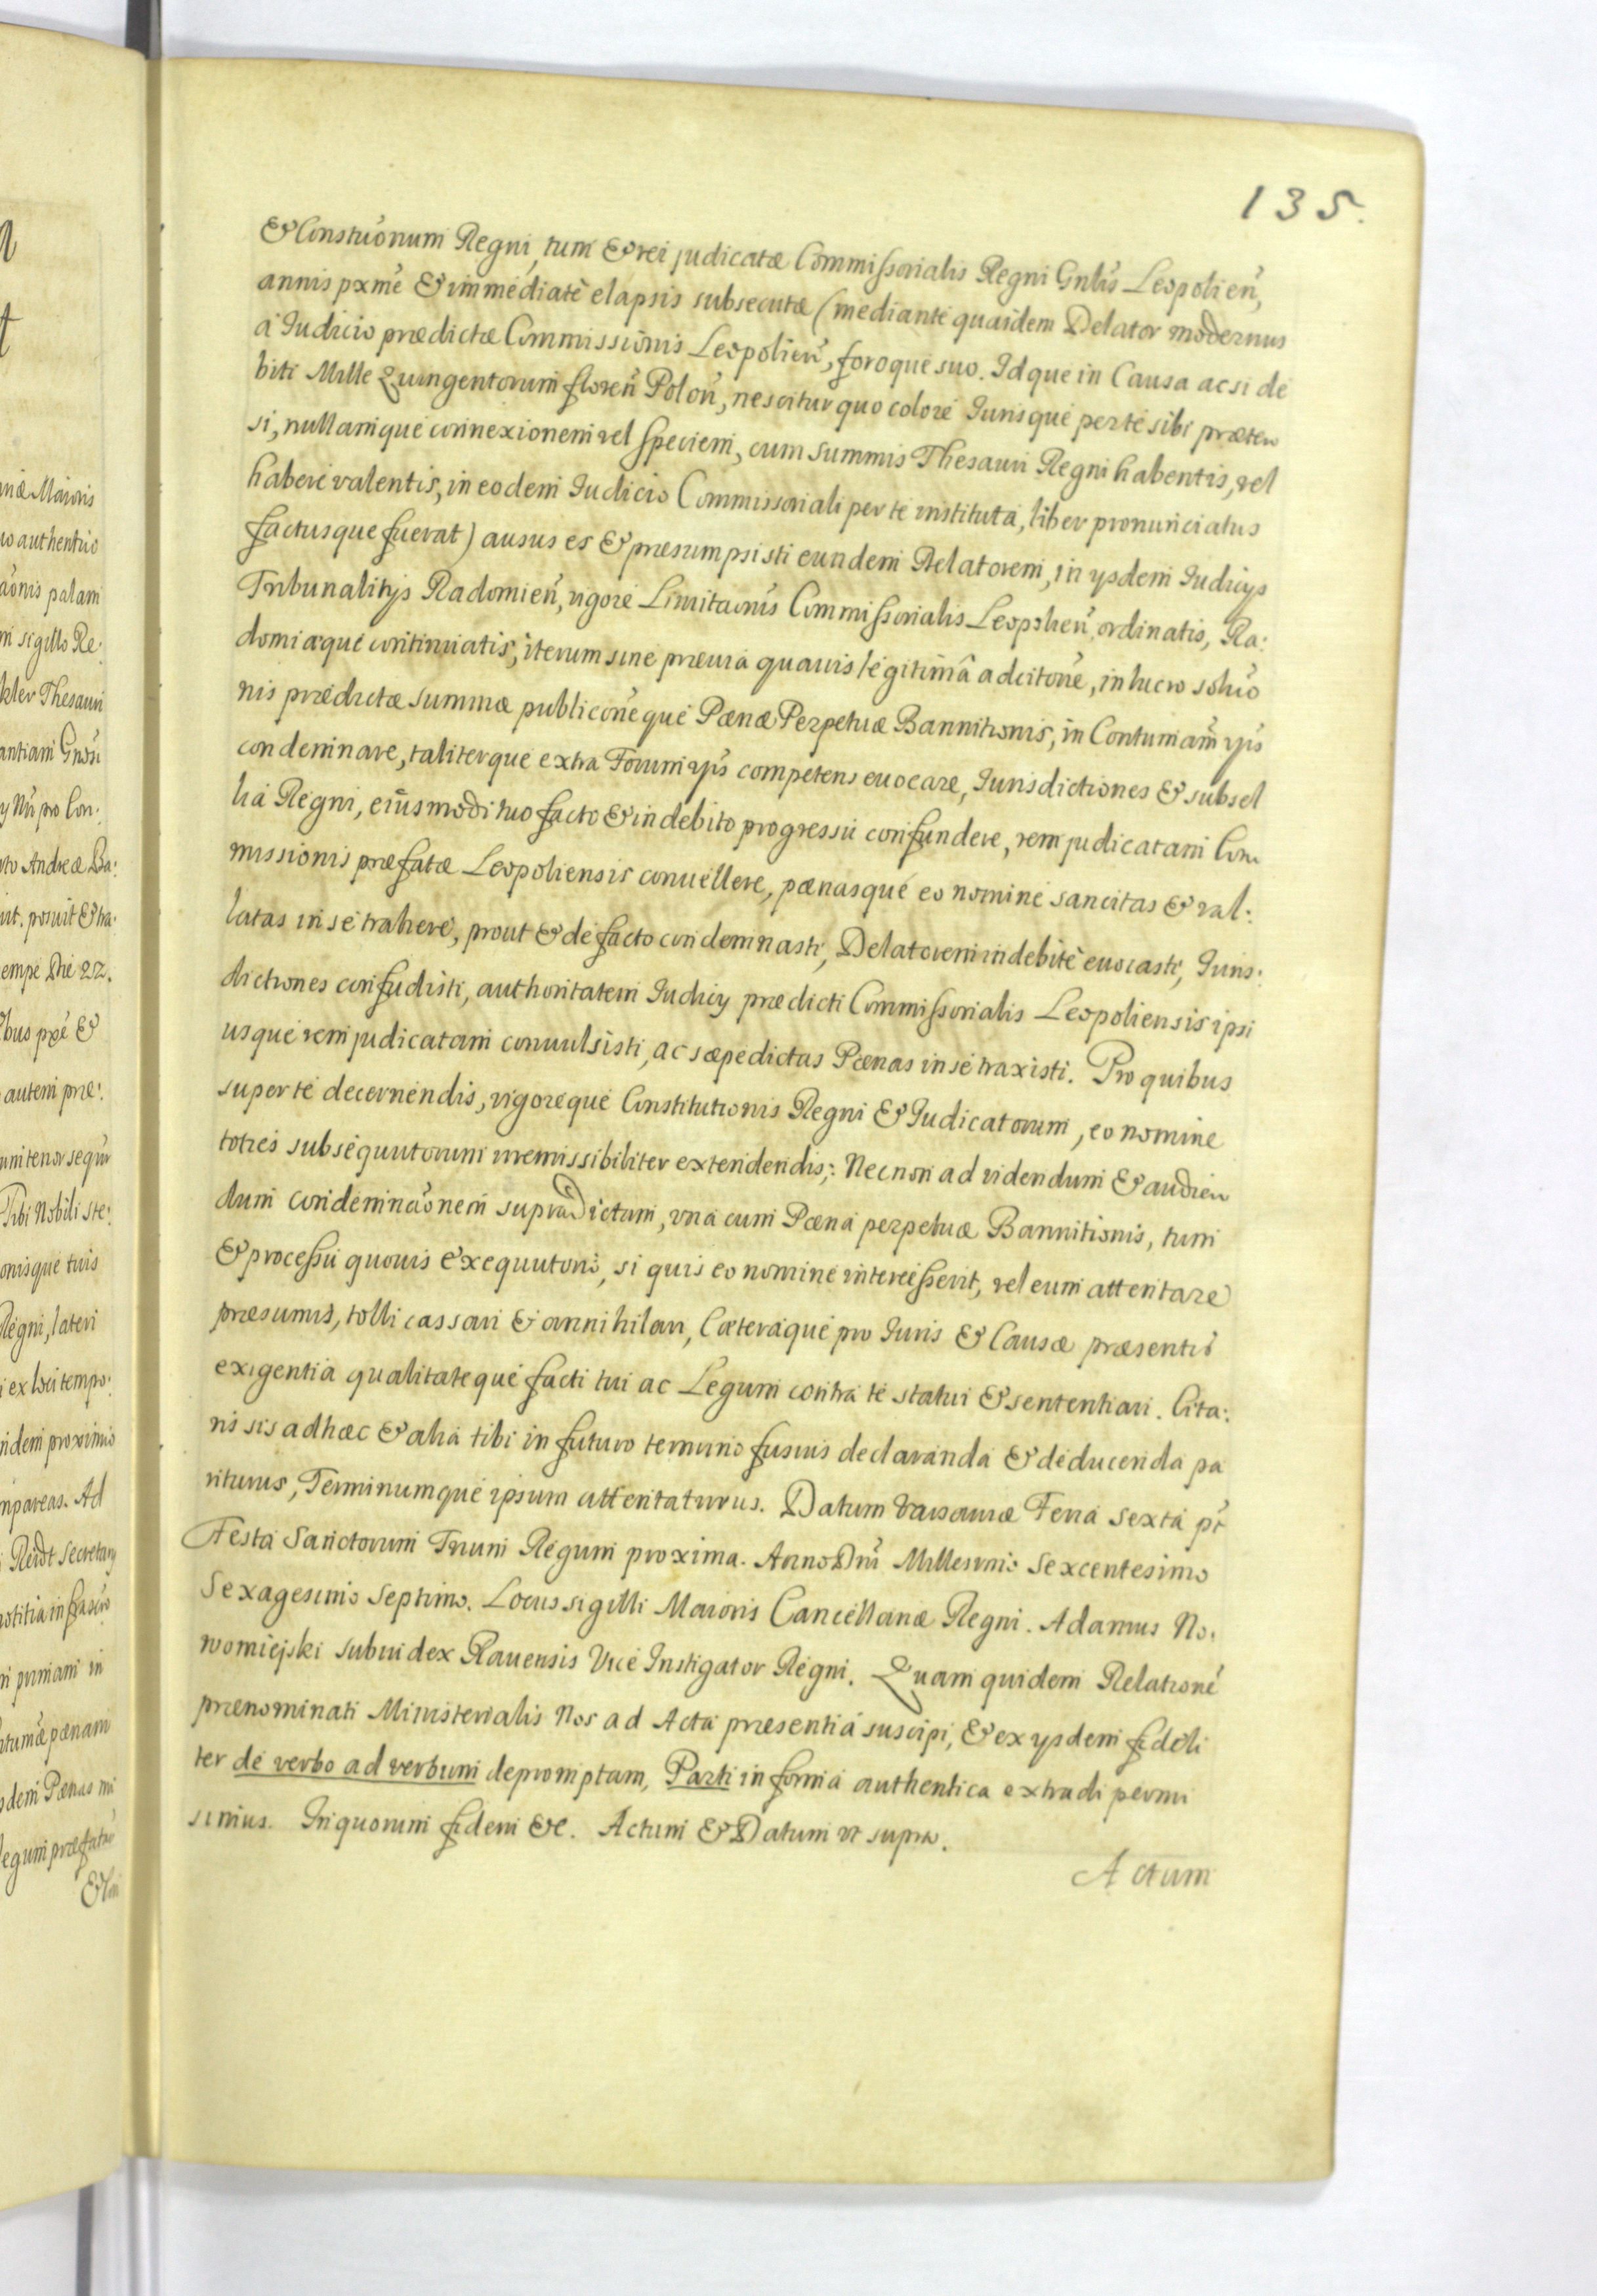 135.
& Constuõnum Regni, tum & rei judicatæ Commissorialis Regni Gnlis Leopolien,
annis pxme & immediatè elapsis subsecutæ (mediante quaidem Delator modernus
à Iudicio prædictæ Commissionis Leopolien, foroque suo. Idque in Causa acsi de
biti Mille Quingentorum floren Polon, nescitur quo colore Iurisque per te sibi præten
si, nullamque connexionem vel speciem, cum summis Thesauri Regni habentis, vel
habere valentis, in eodem Iudicio Commissoriali per te instituta, liber pronunciatus
factusque fuerat) ausus es & præsumpsisti eundem Delatorem, in ysdem Iudicys
Tribunalitys Radomien, vigore Limitaonis Commissorialis Leopolien, ordinatis, Ra:
domiæque continuatis, iterum sine prævia quavis legitimâ adcitone, in lucro soluo
nis prædictæ summæ publiconeque Pænæ Perpetuæ Bannitionis, in Contumam yps
condemnare, taliterque extra Forum yps competens evocare, Iurisdictiones & subsel
lia Regni, eiusmodi tuo facto & indebito progressu confundere, rem judicatam Com
missionis præfatæ Leopoliensis convellere, pænasque eo nomine sancitas & val:
latas in se trahere, prout & de facto condemnasti, Delatorem indebitè evocasti, Iuris:
dictiones confudisti, authoritatem Iudicy prædicti Commissorialis Leopoliensis ipsi
usque rem judicatam convulsisti, ac sæpedictas Pænas in se traxisti. Pro quibus
super te decernendis, vigoreque Constitutionis Regni & Iudicatorum, eo nomine
toties subsequutorum irremissibiliter extendendis; Necnon ad videndum & audien
dum condemnaonem supradictam, una cum Pæna perpetuæ Bannitionis, tum
& processu quovis exequutorio, si quis eo nomine intercesserit, vel eum attentare
præsumis, tolli cassari & annihilari, Cæteraque pro Iuris & Causæ præsentis
exigentia qualitateque facti tui ac Legum contra te statui & sententiari. Cita:
ris sis ad hæc & alia tibi in futuro termino fusius declaranda & deducenda pa
riturus, Terminumque ipsum attentaturus. Datum Varsaviæ Feria sexta pt
Festa Sanctorum Trium Regum proxima. Anno Dni Millesimo Sexcentesimo
Sexagesimo Septimo. Locus sigilli Maioris Cancellariæ Regni. Adamus No.
womiejski subiudex Ravensis Vice Instigator Regni. Quam quidem Relatione
prænominati Ministerialis Nos ad Acta præsentia suscipi, & ex ysdem fideli
ter de verbo ad verbum depromptam, Parti in forma authentica extradi permi
simus. In quorum fidem &c. Actum & Datum vt supra.
Actum